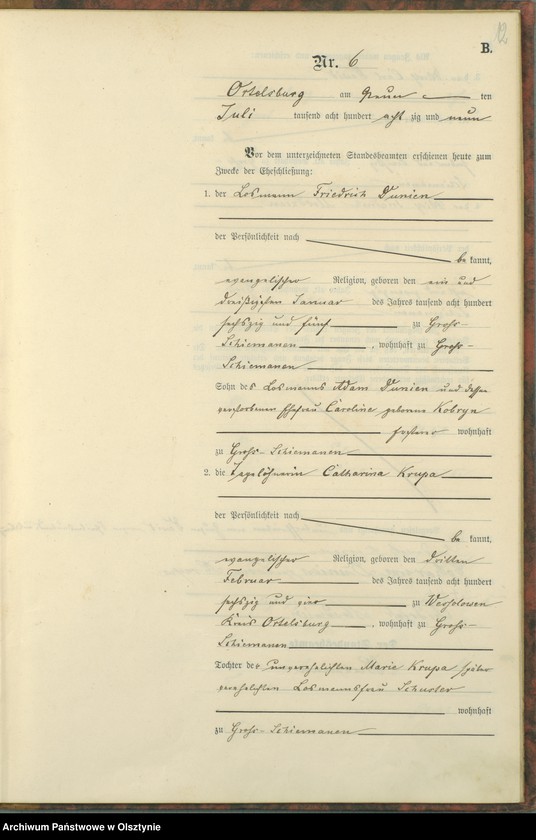 12
B.
Nr. 6
Ortelsburg am neun ten
Juli tausend acht hundert acht zig und neun
Vor dem unterzeichneten Standesbeamten erschienen heute zum
Zwecke der Eheschließung:
1. der Losmann Friedrich Dunien
der Persönlichkeit nach
be kannt,
evangelischer Religion, geboren den ein und
dreißigsten Januar des Jahres tausend acht hundert
sechszig und fünf zu Groß-
Schiemanen, wohnhaft zu Groß-
Schiemanen
Sohn des Losmanns Adam Dunien und dessen
verstorbenen Ehefrau Caroline geborene Kobryn
ersterer wohnhaft
zu Groß-Schiemanen
2. die Tagelöhnerin Catharina Krupa
der Persönlichkeit nach
be kannt,
evangelischer Religion, geboren den dritten
Februar des Jahres tausend acht hundert
sechszig und vier zu
Kreis Ortelsburg, wohnhaft zu Groß-
Schiemanen
Tochter der unverehelichten Marie Krupa später
verehelichten Losmannsfrau
wohnhaft
zu Groß-Schiemanen
Archiwum Państwowe w Olsztynie